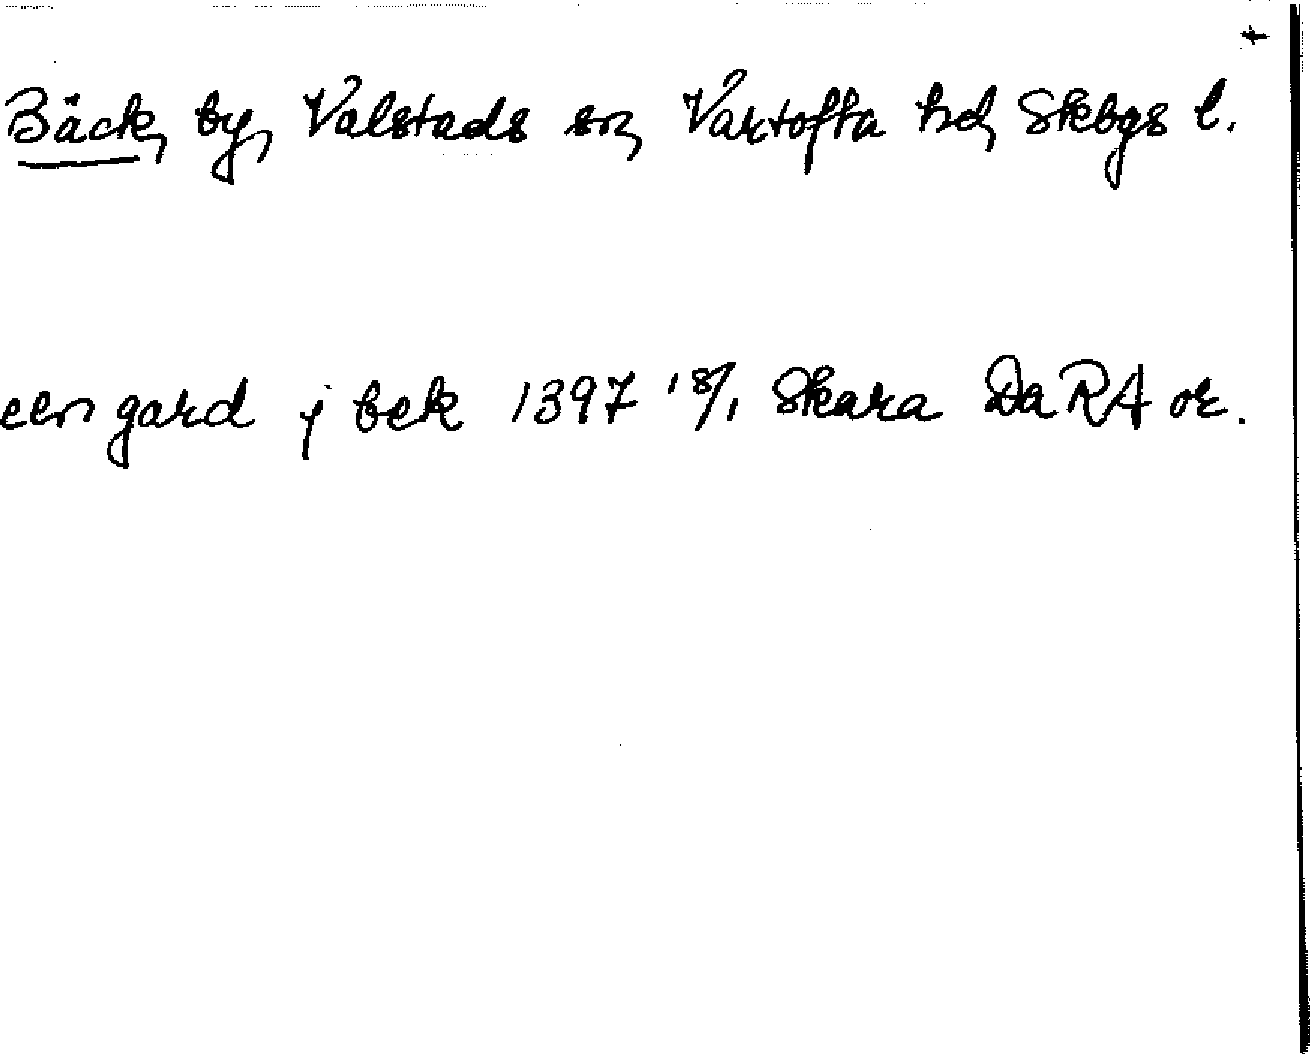 Bäck, by, Valstads sn, Vartofta hd, Skbgs l.
een gard j bek 1397 18/1 Skara DaRA or.